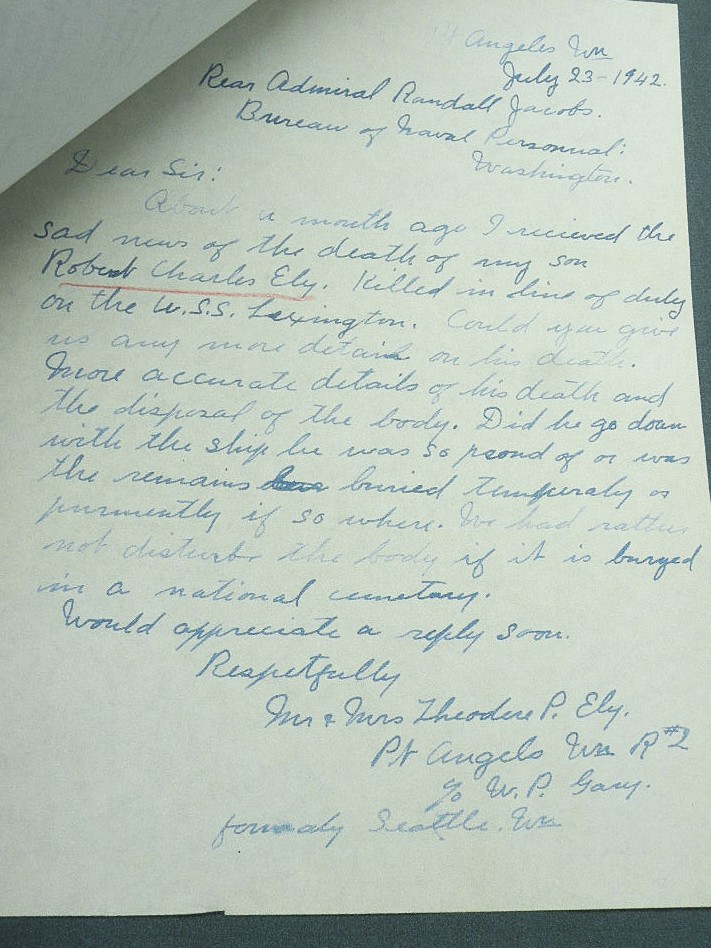 Pt Angeles Wn
July 23-1942.
Rear Admiral Randall Jacobs.
Bureau of Naval Personnal:
Washington.
Dear Sir:
About a month ago I recieved the
sad news of the death of my son
Robert Charles Ely. Killed in line of duty
on the U.S.S. Lexington. Could you give
us any more details on his death.
More accurate details of his death and
the disposal of the body. Did he go down
with the ship he was so proud of or was
the remains buried temperaly or
purmently if so where. We had rather
not disturbe the body if it is buryed
in a national cemetary.
Would appreciate a reply soon.
Respetfully
Mr & Mrs Theodore P. Ely.
Pt Angels Wn R#2
c/o W. P. Gary.
formaly Seattle. Wn